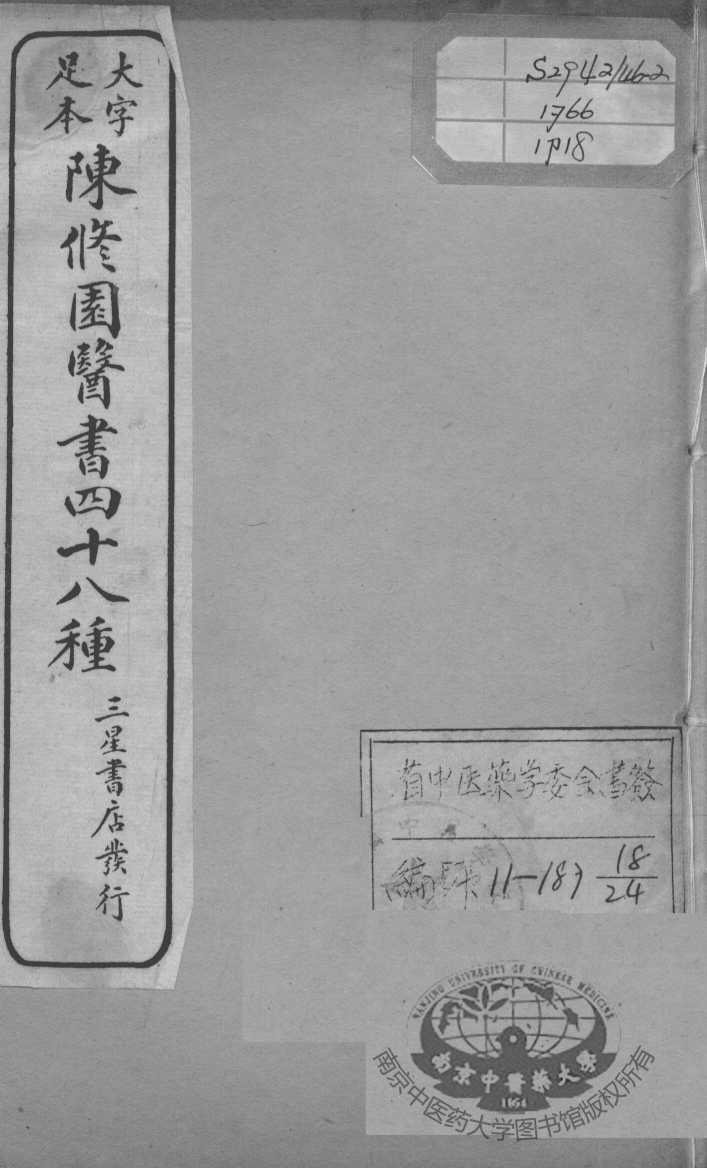 大字
足本
陳修園醫書四十八種
三星書店發行
S2942/46-2
1766
1718
省中医藥学委会書籤
編號 11-187 18/24
NANJING UNIVERSITY OF CHINESE MEDICINE
南京中醫藥大學
1954
南京中医药大学图书馆版权所有